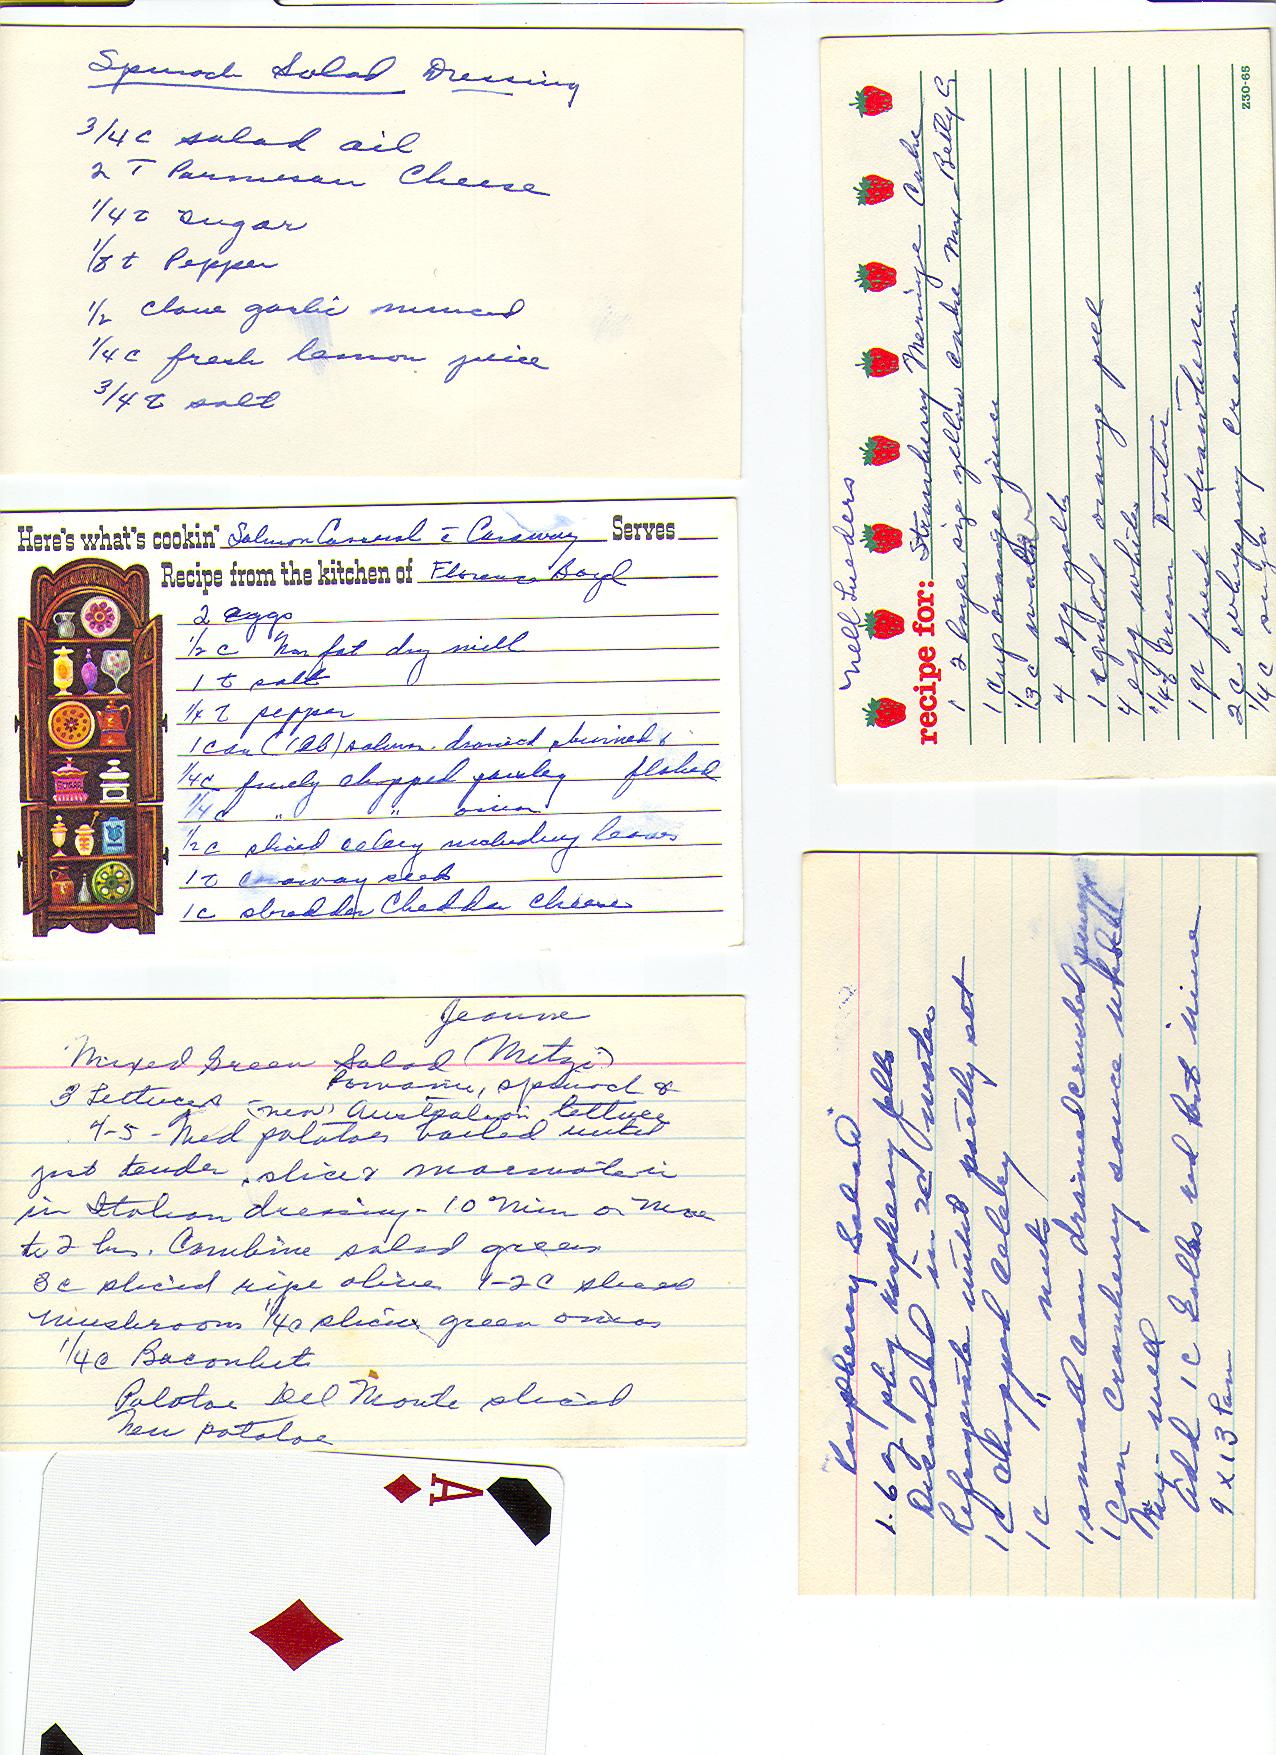 Spinach Salad Dressing
3/4 c salad oil
2 T Parmesan Cheese
1/4 t sugar
1/8 t Pepper
1/2 clove garlic minced
1/4 c fresh lemon juice
3/4 t salt
Here's what's cookin' Salmon Casserol c̄ Caraway Serves
Recipe from the kitchen of Florence Boyl
2 eggs
1/2 c Non fat dry milk
1 t salt
1/4 t pepper
1 can (1 lb) salmon. drained skinned &
1/4 c finely chopped parsley flaked
1/4 c " " onion
1/2 c sliced celery including leaves
1 t caraway seeds
1 c shredded Chedda cheese
Jeanne
Mixed Green Salad (Mitzi)
3 Lettuces Romaine, spinach &
(new) Australian lettuce
4-5 - Med potatoes boiled until
just tender. slice & marinate in
in Italian dressing - 10 Min or More
to 2 hrs. Combine salad greens
3 c sliced ripe olives 1-2 C sliced
mushroom 1/4 c slices green onions
1/4 c Baconbits
Potatoe Del Monte sliced
New potatoe
Nell Lueders
recipe for: Strawberry Meringe Cake
1 2 layer size yellow cake mix - Betty C.
1 cup orange juice
1/3 c water
4 egg yolks
1 t grated orange peel
4 egg whites
1/4 t Cream Tartar
1 qt fresh strawberries
2 c whipping cream
1/4 c sugar
Z30-65
"Raspberry Salad"
1-6 oz pkg raspberry jello
Dissolved in 2 c water
Refrigerate until partly set
1 C chopped celery
1 c " nuts
1 small can drained crushed pineapple
1 Can Cranberry sauce whole
Mix well
Add 1 C Gallos red Port wine
9 x 13 Pan
A